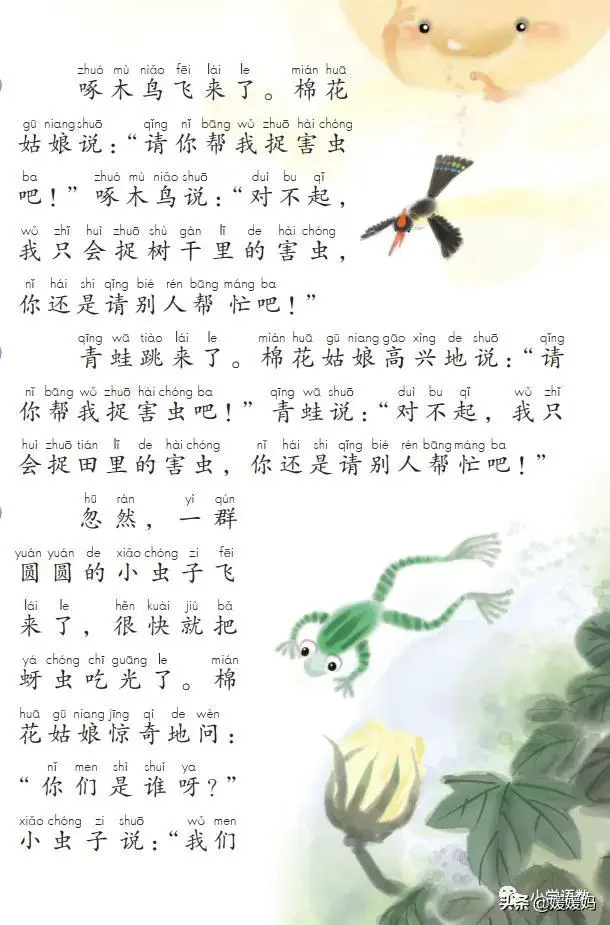 zhuó mù niǎo fēi lái le mián huā
啄木鸟飞来了。棉花
gū niang shuō qǐng nǐ bāng wǒ zhuō hài chóng
姑娘说：“请你帮我捉害虫
ba zhuó mù niǎo shuō duì bu qǐ
吧！”啄木鸟说：“对不起，
wǒ zhǐ huì zhuō shù gàn lǐ de hài chóng
我只会捉树干里的害虫，
nǐ hái shi qǐng bié rén bāng máng ba
你还是请别人帮忙吧！”
qīng wā tiào lái le mián huā gū niang gāo xìng de shuō qǐng
青蛙跳来了。棉花姑娘高兴地说：“请
nǐ bāng wǒ zhuō hài chóng ba qīng wā shuō duì bu qǐ wǒ zhǐ
你帮我捉害虫吧！”青蛙说：“对不起，我只
huì zhuō tián lǐ de hài chóng nǐ hái shi qǐng bié rén bāng máng ba
会捉田里的害虫，你还是请别人帮忙吧！”
hū rán yì qún
忽然，一群
yuán yuán de xiǎo chóng zi fēi
圆圆的小虫子飞
lái le hěn kuài jiù bǎ
来了，很快就把
yá chóng chī guāng le mián
蚜虫吃光了。棉
huā gū niang jīng qí de wèn
花姑娘惊奇地问：
nǐ men shì shuí ya
“你们是谁呀？”
xiǎo chóng zi shuō wǒ men
小虫子说：“我们
小学语数
头条@媛媛妈